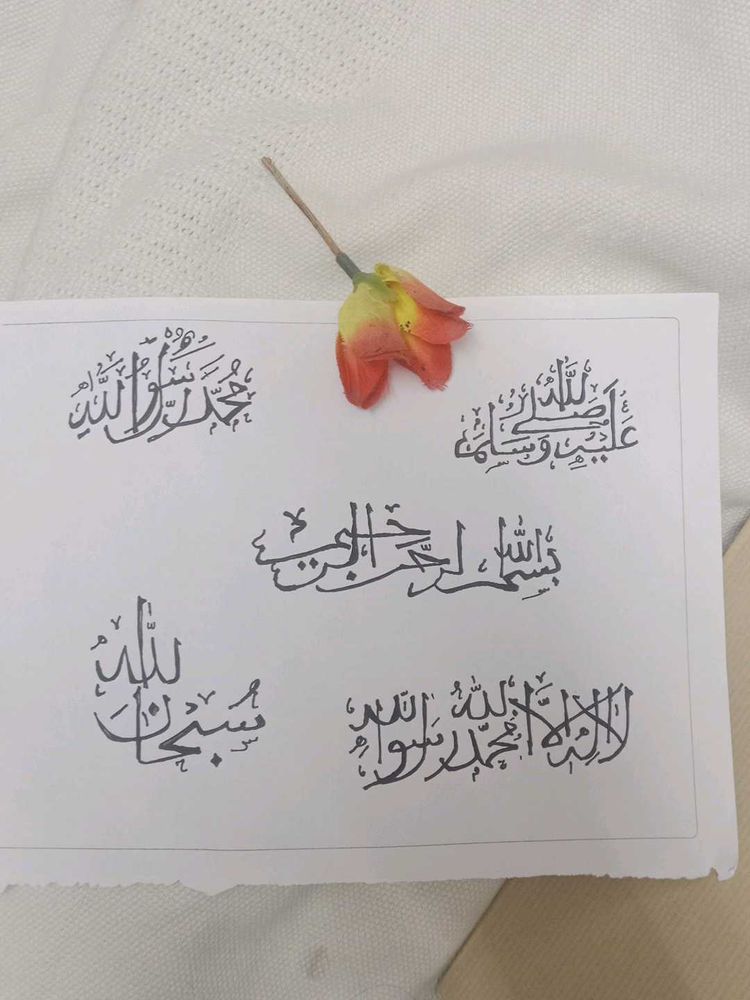 صَلَّى اللَّهُ عَلَيْهِ وَسَلَّمَ
مُحَمَّدٌ رَسُولُ اللَّهِ
بِسْمِ اللهِ الرَّحْمٰنِ الرَّحِيمِ
لَا إِلٰهَ إِلَّا اللهُ مُحَمَّدٌ رَسُولُ اللهِ
سُبْحَانَ اللَّهِ